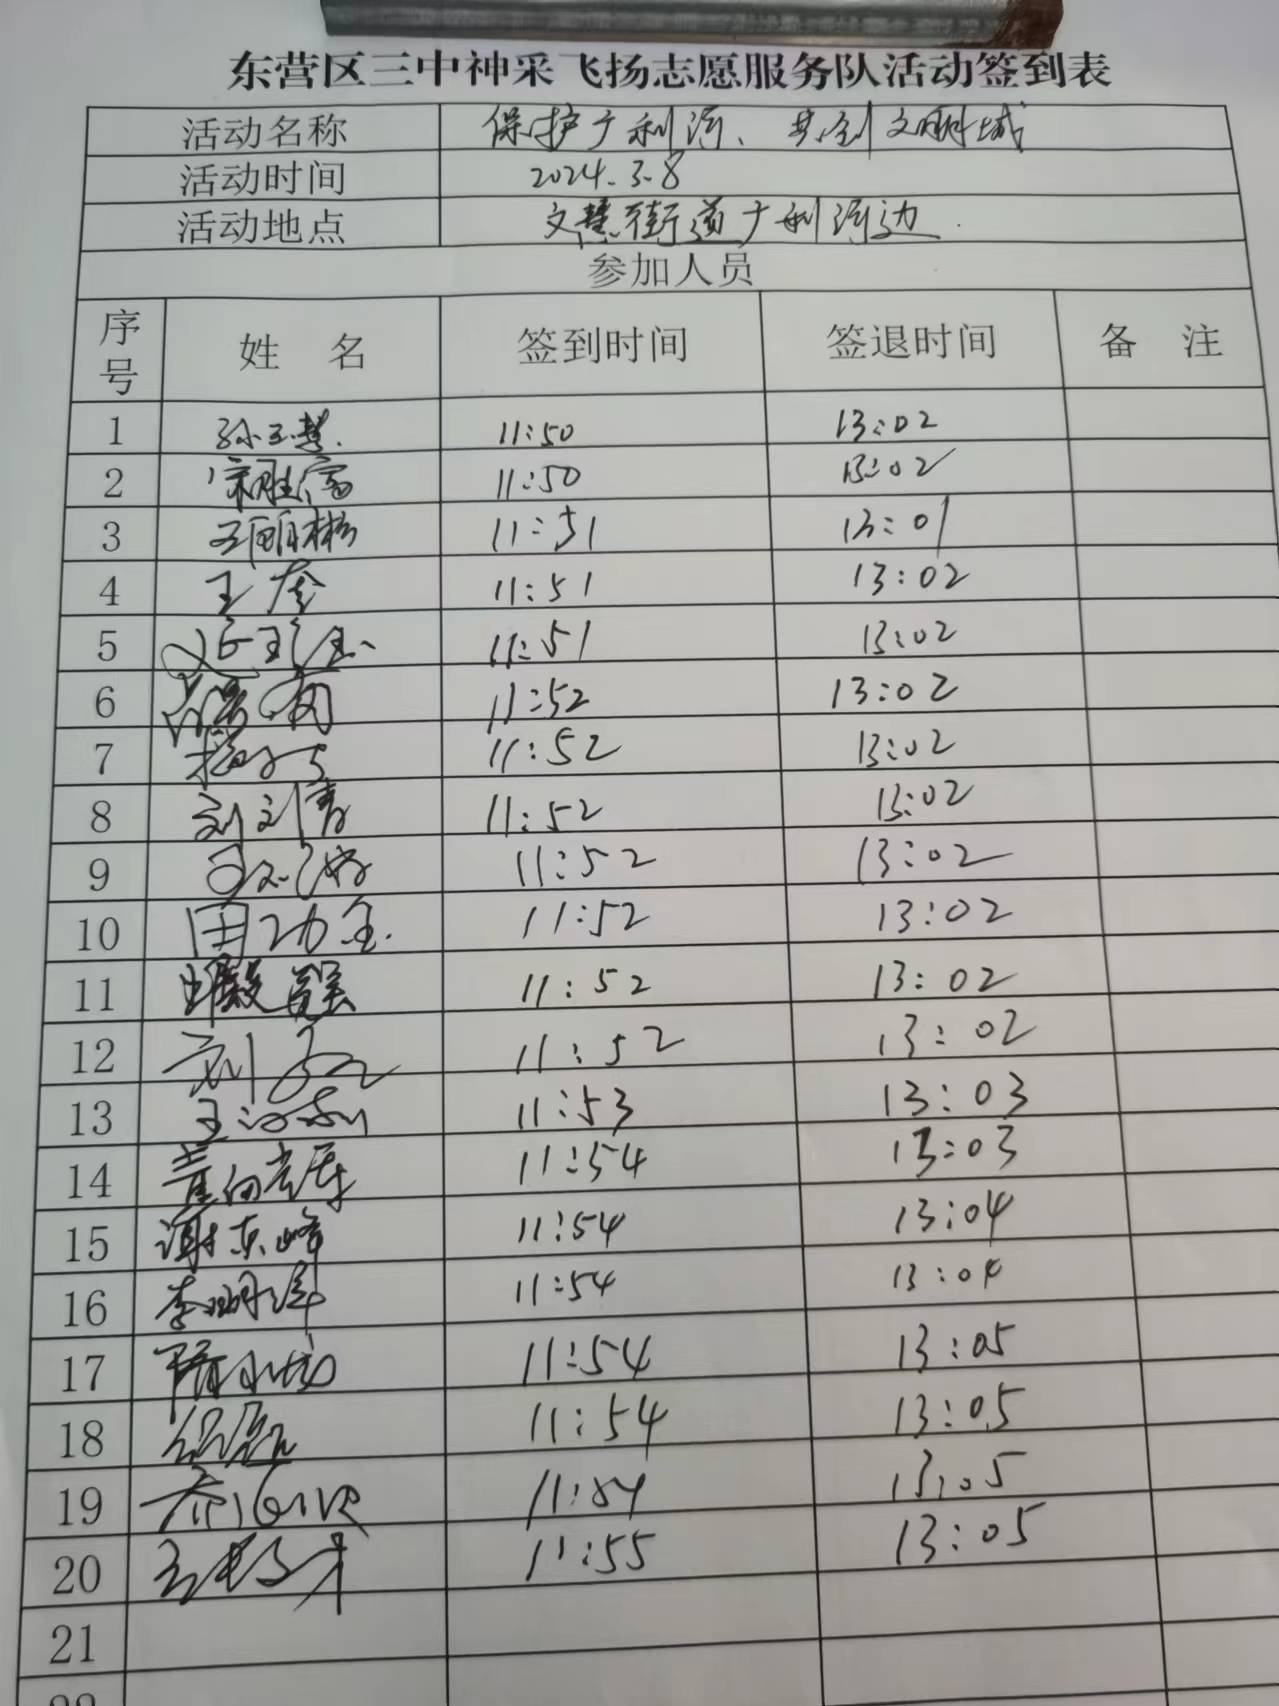 东营区三中神采飞扬志愿服务队活动签到表
活动名称 保护广利河、共创文明城
活动时间 2024.3.8
活动地点 文慧街道广利河边
参加人员
序号 姓名 签到时间 签退时间 备注
1 孙玉慧 11:50 13:02
2 宋胜富 11:50 13:02
3 王丽彬 11:51 13:01
4 王奎 11:51 13:02
5 11:51 13:02
6 11:52 13:02
7 11:52 13:02
8 刘剑青 11:52 13:02
9 11:52 13:02
10 田功全 11:52 13:02
11 11:52 13:02
12 刘 11:52 13:02
13 王 11:53 13:03
14 11:54 13:03
15 谢东峰 11:54 13:04
16 李明洋 11:54 13:04
17 隋小成 11:54 13:05
18 11:54 13:05
19 11:54 13:05
20 11:55 13:05
21